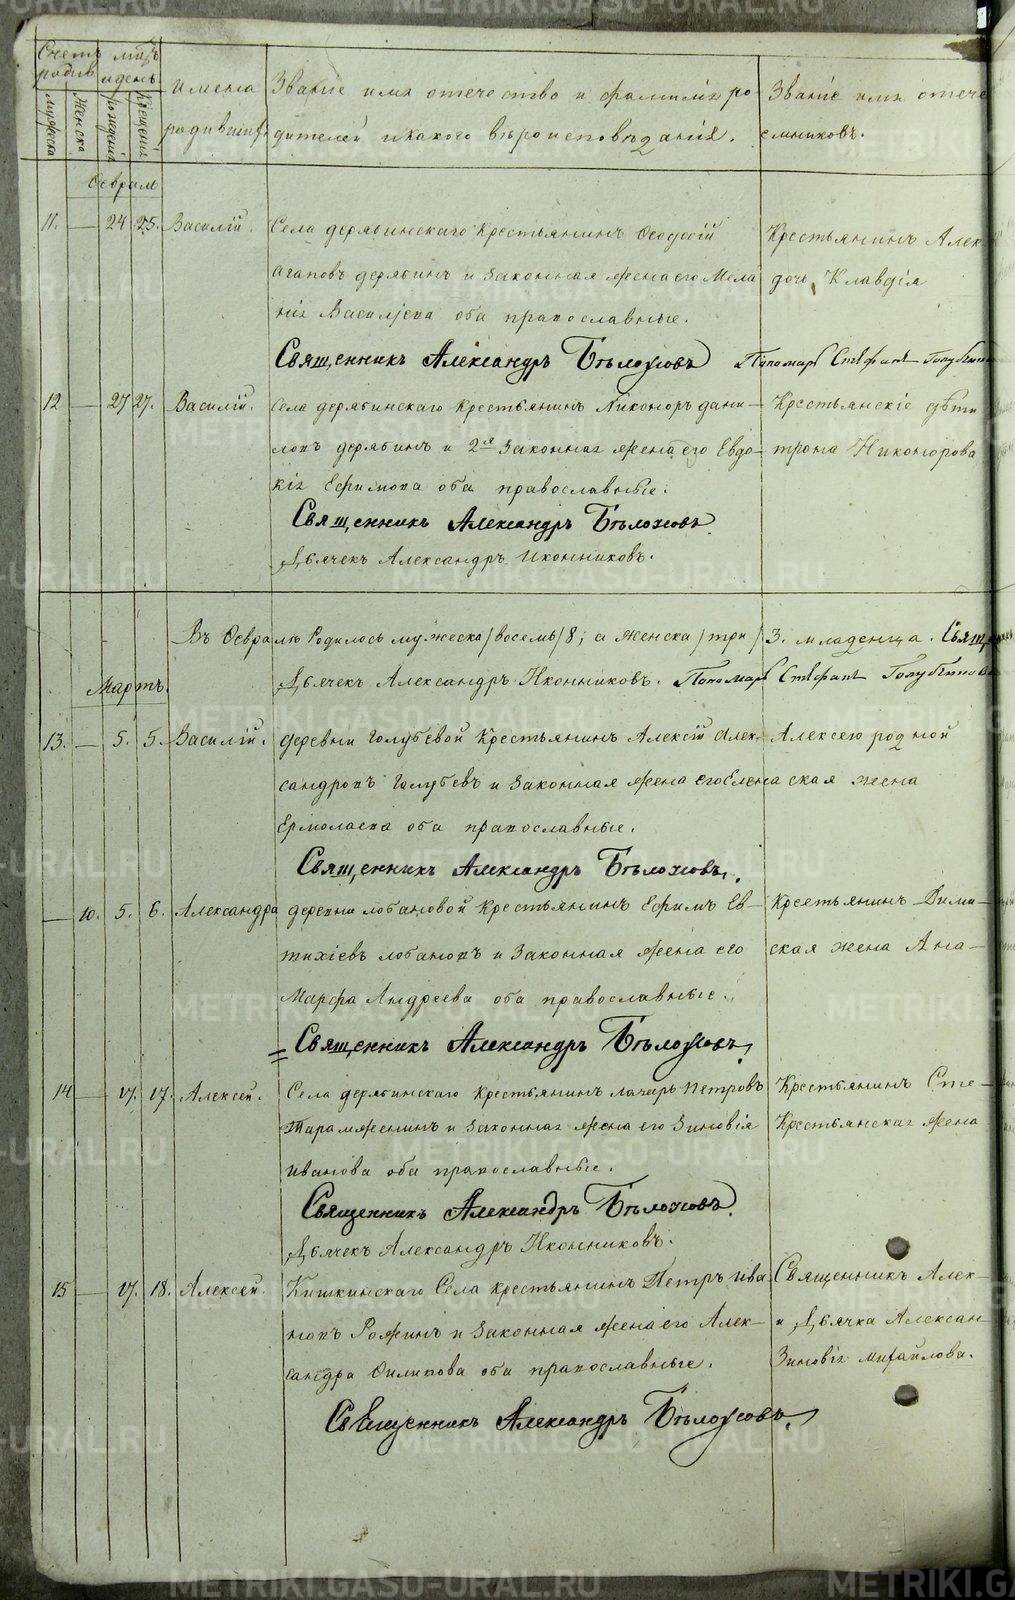 Счетъ родив. мѣсяцъ и день
мужеска
женска
рожденія
крещенія
Имена родившихся
Званіе имя отечество и фамилія ро-
дителей и какого вѣроисповѣданія.
Званіе имя отече
емниковъ.
Февраля
11. — 24 25. Василій. Села дерябинскаго Крестьянинъ Ѳеодосій Крестьянинъ Алек
Агаповъ дерябинъ и Законная жена его Мела дочь Клавдія
нія Васильева оба православные.
Священникъ Александръ Бѣлоусовъ Пономарь Стефанъ Голубчиков
12 — 27 27. Василій. Села дерябинскаго Крестьянинъ Никоноръ дани- Крестьянскіе дѣти
ловъ дерябинъ и 2я Законная жена его Евдо- трона Никонорова
кія Ефимова оба православные.
Священникъ Александръ Бѣлоусовъ
Дьячекъ Александръ Иконниковъ.
Въ Февралѣ Родилось мужеска /восемь/ 8; а женска /три/ 3. младенца. Свящ
Дьячекъ Александръ Иконниковъ. Пономарь Стефанъ Голубчиков
Мартъ.
13. — 5. 5. Василій. деревни Голубевой Крестьянинъ Алексій Алек- Алексею родной
сандровъ Голубевъ и Законная жена его Елена ская жена
Ермолаева оба православные.
Священникъ Александръ Бѣлоусовъ.
— 10. 5. 6. Александра деревни лобановой Крестьянинъ Ефимъ Ев- Крестьянинъ
тихіевъ лобановъ и Законная жена его ская жена Ана-
Марфа Андреева оба православные.
Священникъ Александръ Бѣлоусовъ.
14 — 17. 17. Алексей. Села дерябинскаго Крестьянинъ Петровъ Крестьянинъ Сте-
и Законная жена его Зиновія Крестьянская жена
Иванова оба православные.
Священникъ Александръ Бѣлоусовъ.
Дьячекъ Александръ Иконниковъ.
15 — 17. 18. Алексей. Кишкинскаго Села крестьянинъ Петръ Ива Священникъ Алек-
новъ Рожинъ и Законная жена его Алек- и Дьячка Алексан
сандра Филипова оба православные. Зиновія Михайлова.
Священникъ Александръ Бѣлоусовъ.
METRIKI.GASO-URAL.RU